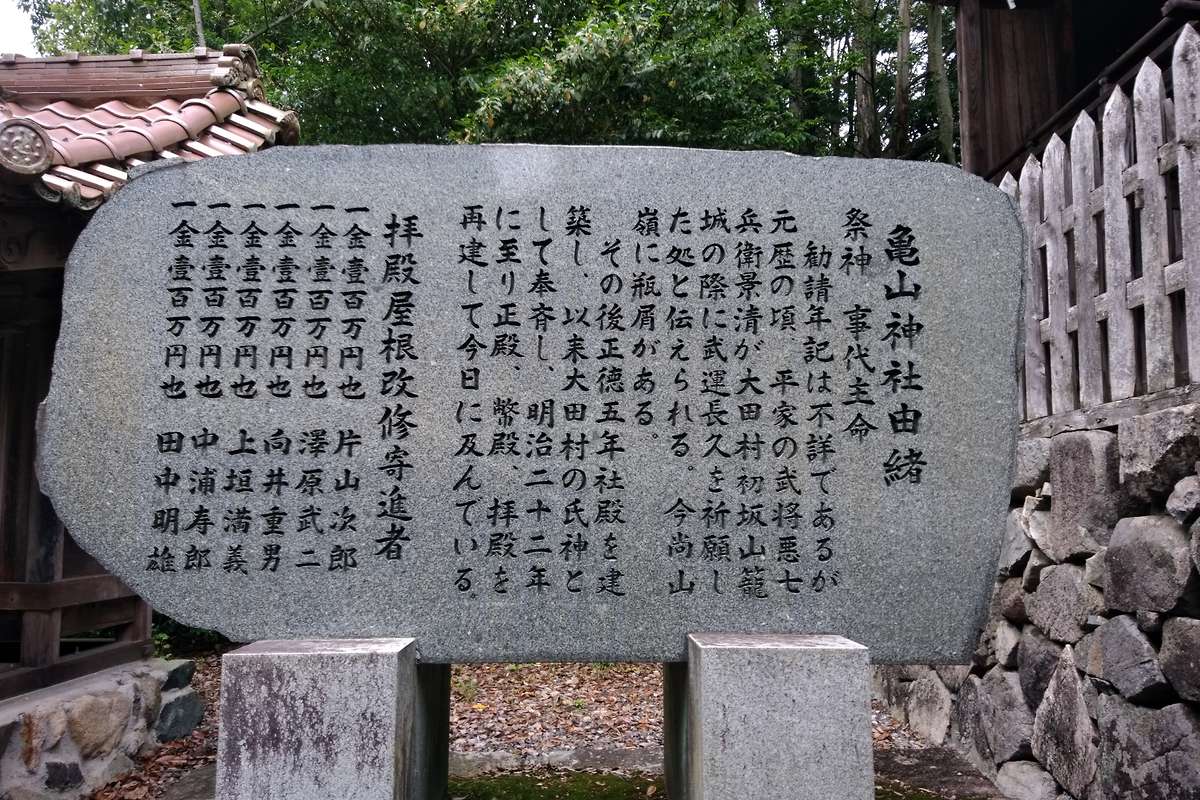 亀山神社由緒
祭神　事代主命
勧請年記は不詳であるが
元歴の頃、平家の武将悪七
兵衛景清が大田村初坂山籠
城の際に武運長久を祈願し
た処と伝えられる。今尚山
嶺に瓶屑がある。
その後正徳五年社殿を建
築し、以来大田村の氏神と
して奉斉し、明治二十二年
に至り正殿、幣殿、拝殿を
再建して今日に及んでいる。
拝殿屋根改修寄進者
一金壹百万円也　片山次郎
一金壹百万円也　澤原武二
一金壹百万円也　向井重男
一金壹百万円也　上垣満義
一金壹百万円也　中浦寿郎
一金壹百万円也　田中明雄